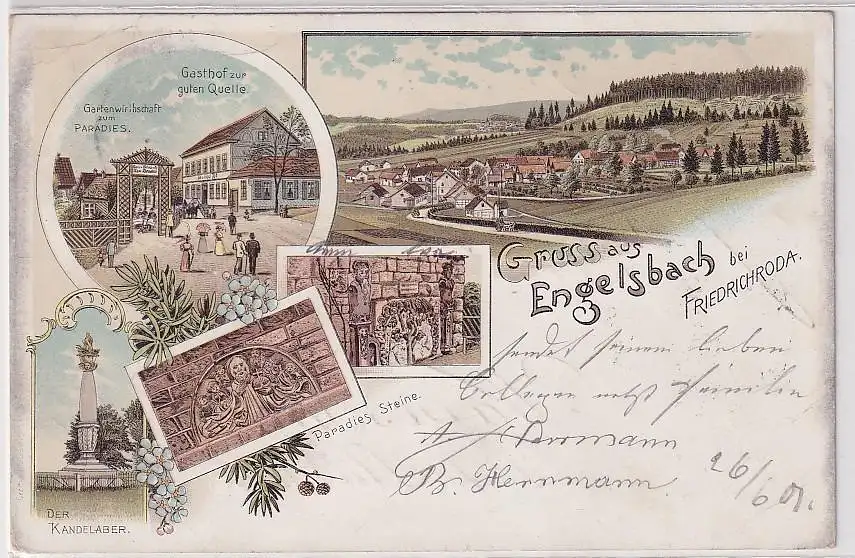 Gasthof zur
guten Quelle.
Gartenwirthschaft
zum
PARADIES.
Gruss aus
Engelsbach bei
FRIEDRICHRODA.
Paradies Steine.
DER
KANDELABER.
sendet seinem lieben
Collegen nebst Familie
Herrmann
Br. Herrmann.
26/6 01.